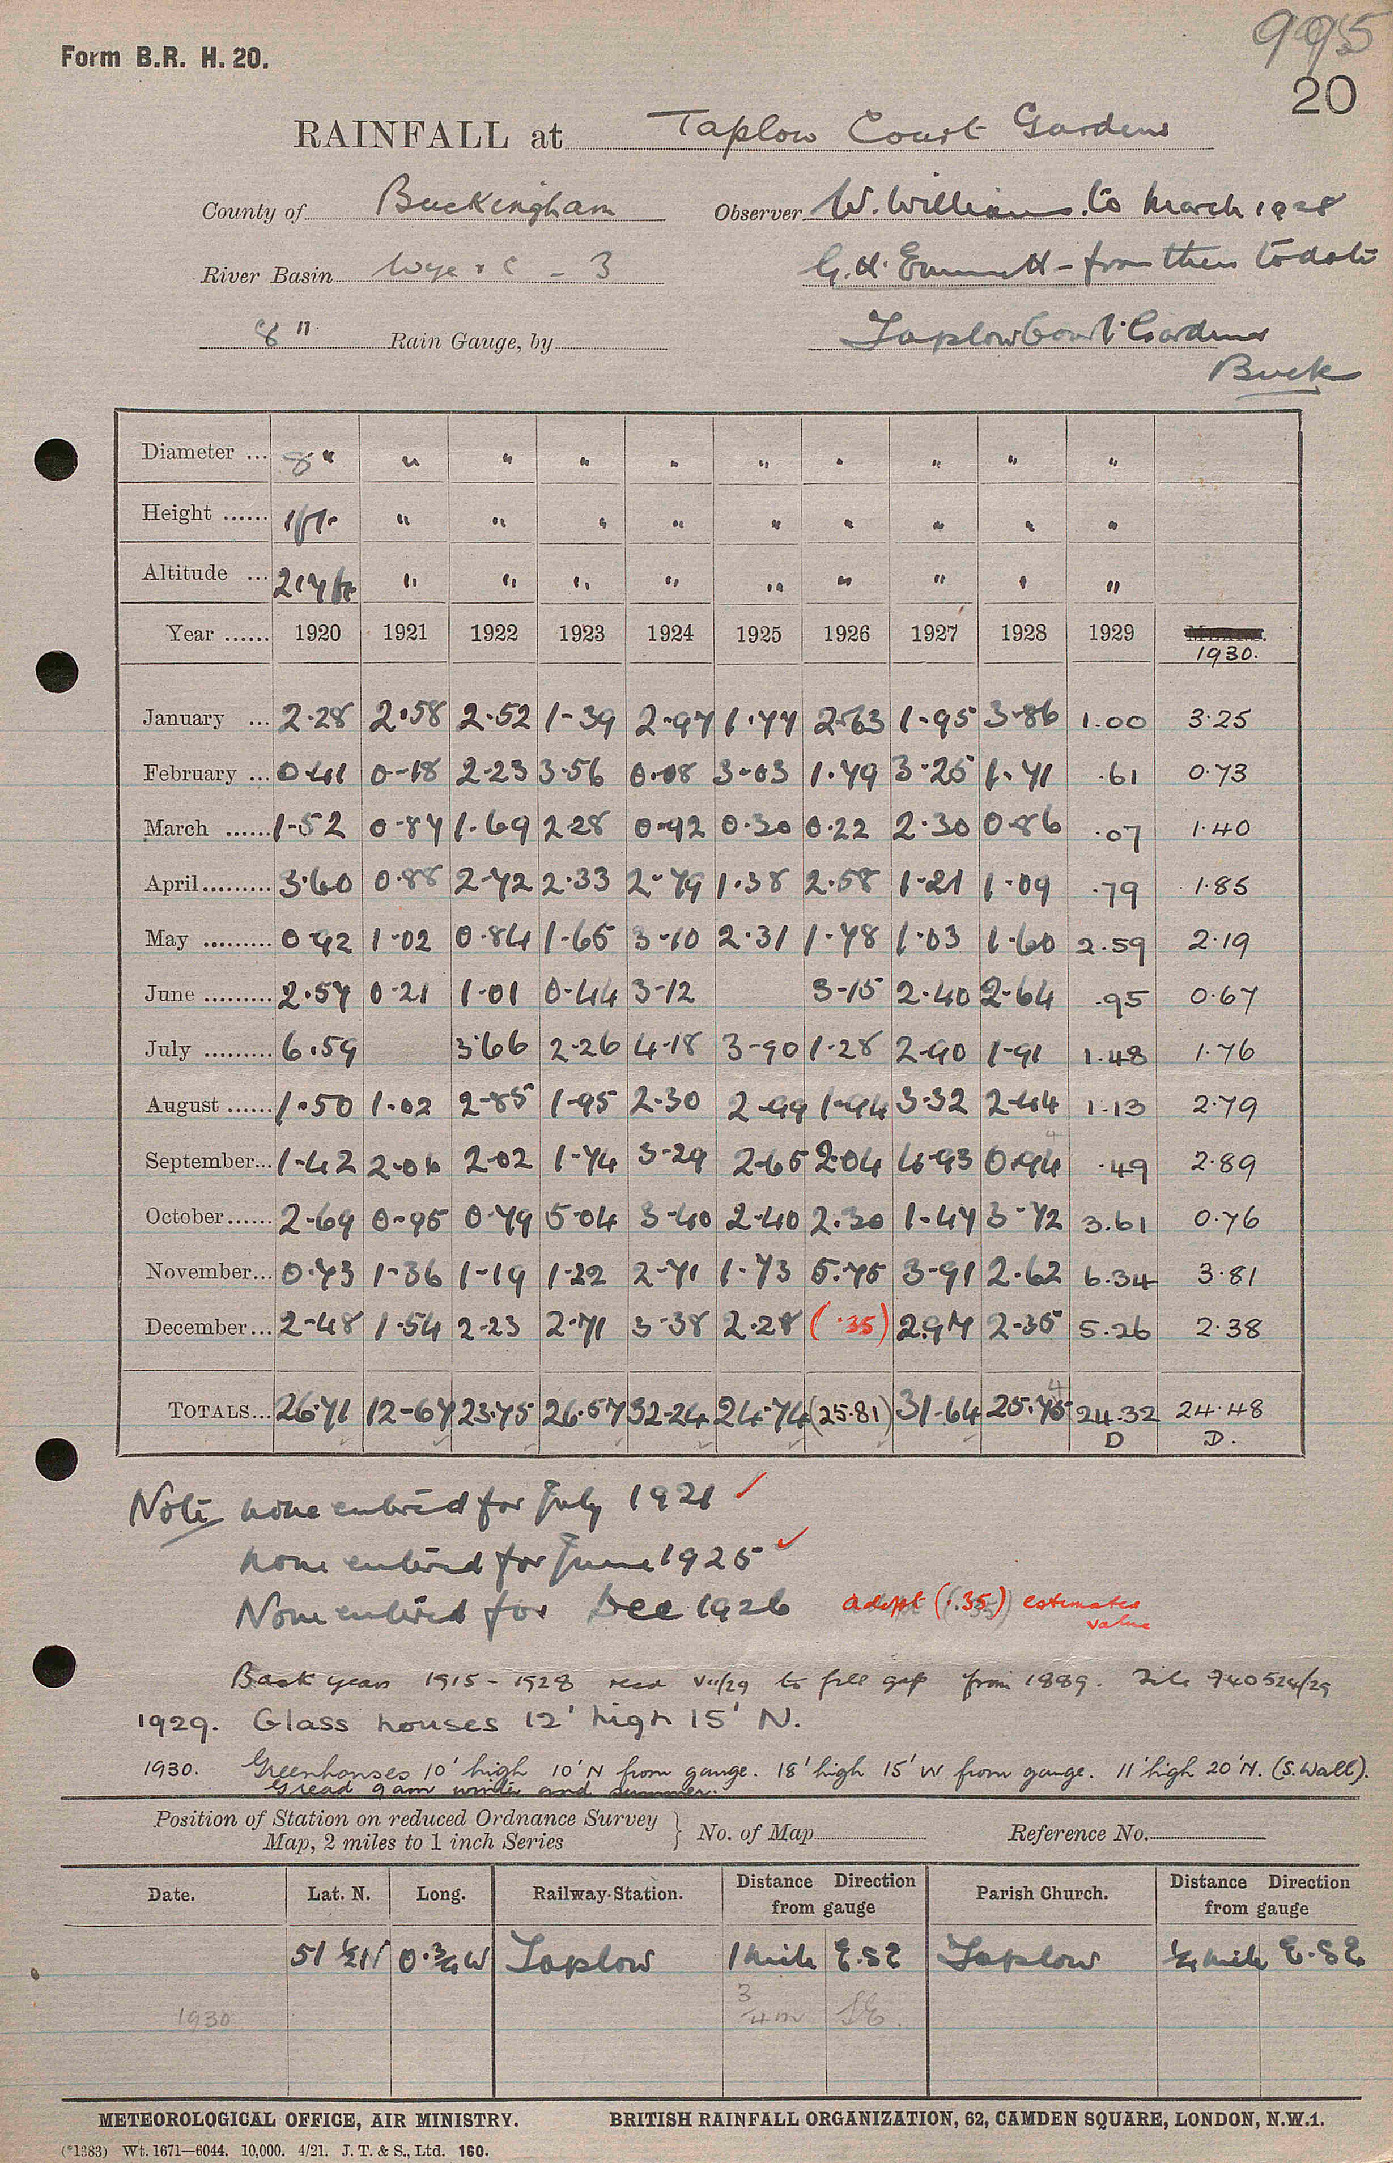 995
Form B.R. H. 20.
20
RAINFALL at Taplow Court Gardens
County of Buckingham Observer W. Williams. to March 1928
River Basin Wye &c - 3 G. H. Emmett - from then to date
8" Rain Gauge, by Taplow Court Gardens
Buck
Diameter ... 8" " " " " " " " " "
Height ...... 1ft. " " " " " " " " "
Altitude ... 217ft " " " " " " " " "
Year ...... 1920 1921 1922 1923 1924 1925 1926 1927 1928 1929 1930.
January ... 2.28 2.58 2.52 1-39 2-97 1.77 2-63 1-95 3-86 1.00 3.25
February ... 0.41 0-18 2-23 3-56 0-08 3-03 1.79 3-25 1.71 .61 0.73
March ...... 1-52 0-87 1-69 2-28 0-92 0.30 0.22 2.30 0-86 .07 1.40
April......... 3.60 0.88 2-72 2.33 2-79 1.38 2.58 1-21 1-09 .79 1.85
May ......... 0-92 1-02 0.84 1-65 3-10 2.31 1-78 1.03 1.60 2.59 2.19
June ......... 2.57 0-21 1-01 0-44 3-12 3-15 2.40 2-64 .95 0.67
July ......... 6.59 3.66 2-26 4-18 3-90 1-28 2-90 1-91 1.48 1.76
August ...... 1.50 1.02 2-85 1-95 2-30 2-99 1-94 3-32 2-44 1.13 2.79
September... 1-42 2-06 2-02 1-74 3-29 2-65 2.04 4-93 0.94 .49 2.89
October...... 2-69 0-95 0-79 5-04 3-40 2-40 2.30 1-47 3-72 3.61 0.76
November... 0.73 1-36 1-19 1-22 2-71 1-73 5.75 3-91 2.62 6.34 3.81
December... 2-48 1.54 2-23 2-71 3-38 2.28 (.35) 2.97 2-35 5.26 2.38
TOTALS... 26.71 12-67 23.75 26.57 32-24 24.74 (25.81) 31-64 25.75 4 24.32 24.48
D D.
Note none entered for July 1921 ✓
none entered for June 1925 ✓
None entered for Dec 1926 adopt (.35) estimates value
Back years 1915 - 1928 recd VII/29 to fill gap from 1889. File 740524/29
1929. Glass houses 12' high 15' N.
1930. Greenhouses 10' high 10' N from gauge. 18' high 15' W from gauge. 11' high 20' N. (S. Wall).
G read 9am winter and summer.
Position of Station on reduced Ordnance Survey Map, 2 miles to 1 inch Series } No. of Map Reference No.
Date. Lat. N. Long. Railway Station. Distance Direction from gauge Parish Church. Distance Direction from gauge
51 ½ N 0.¾ W Taplow 1 mile E.SE Taplow ¼ mile E.SE
1930 3/4 m SE.
METEOROLOGICAL OFFICE, AIR MINISTRY. BRITISH RAINFALL ORGANIZATION, 62, CAMDEN SQUARE, LONDON, N.W.1.
(*1383) Wt. 1671—6044. 10,000. 4/21. J. T. & S., Ltd. 160.